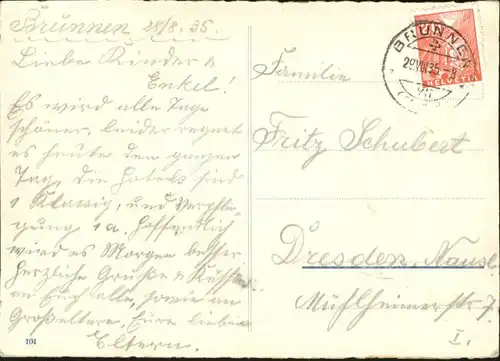 Brunnen 28/8.35.
Liebe Kinder &
Enkel!
Es wird alle Tage
schöner, leider regnet
es heute den ganzen
Tag, die Hotels sind
1 Klassig, und Verpfle-
gung 1a. Hoffentlich
wird es Morgen besser
Herzliche Grüße & Küsse
an Euch alle, sowie an
Großeltern, Eure lieben
Eltern.
101
BRUNNEN
29.VIII.35
HELVETIA
Familie
Fritz Schubert
Dresden, Nausl
Mühlheimerstr 7
I.